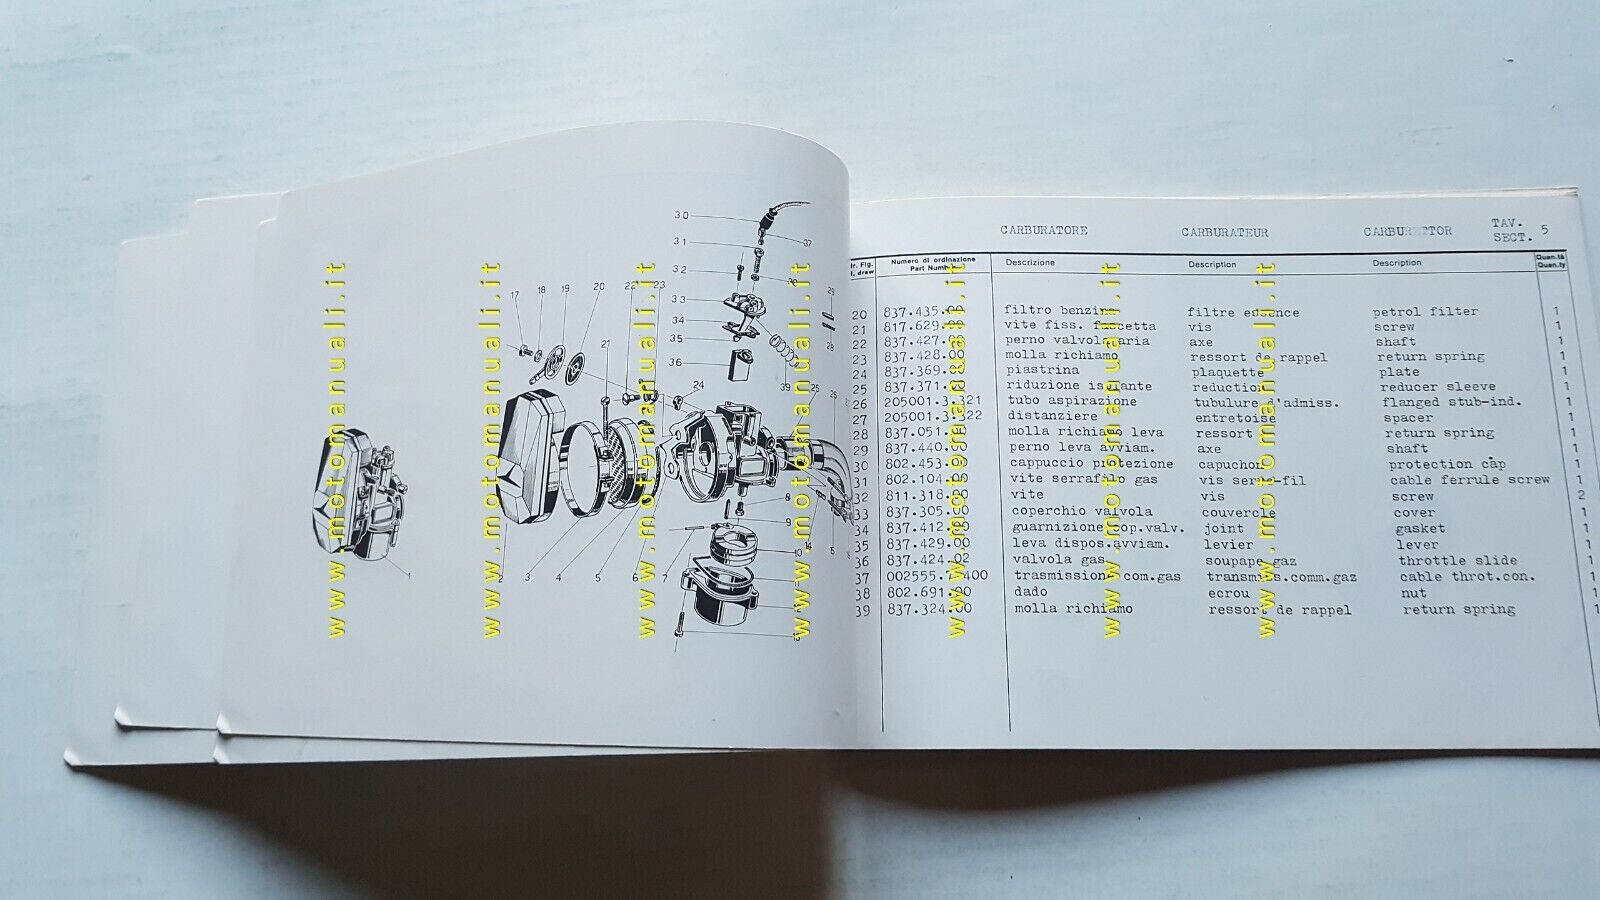 CARBURATORE CARBURATEUR TAV. SECT. 5
Numero di ordinazione Descrizione Description Description Quan.tà
Part Number Quan.ty
20 837.435.00 filtro benzina filtre essence petrol filter 1
21 817.629.00 vite fiss. fascetta vis screw 1
22 837.427.00 perno valvola aria axe shaft 1
23 837.428.00 molla richiamo ressort de rappel return spring 1
24 837.369.00 piastrina plaquette plate 1
25 837.371.00 riduzione isolante reduction reducer sleeve 1
26 205001.3.321 tubo aspirazione tubulure d'admiss. flanged stub-ind. 1
27 205001.3.322 distanziere entretoise spacer 1
28 837.051.00 molla richiamo leva ressort return spring 1
29 837.440.00 perno leva avviam. axe shaft 1
30 802.453.00 cappuccio protezione capuchon protection cap 1
31 802.104.00 vite serrafilo gas vis serre-fil cable ferrule screw 1
32 811.318.00 vite vis screw 2
33 837.305.00 coperchio valvola couvercle cover 1
34 837.412.00 guarnizione cop.valv. joint gasket 1
35 837.429.00 leva dispos.avviam. levier lever 1
36 837.424.02 valvola gas soupape gaz throttle slide 1
37 trasmissione com.gas transmiss.comm.gaz cable throt.con. 1
38 802.691.00 dado ecrou nut 1
39 837.324.00 molla richiamo ressort de rappel return spring 1
30
31
37
32
33
34
35
36
17 18 19 20 22 23
21
24
39 25
29
28
1
2 3 4 5 6 7
8
9
10
www.motomanuali.it
www.motomanuali.it
www.motomanuali.it
www.motomanuali.it
www.motomanuali.it
www.motomanuali.it
www.motomanuali.it